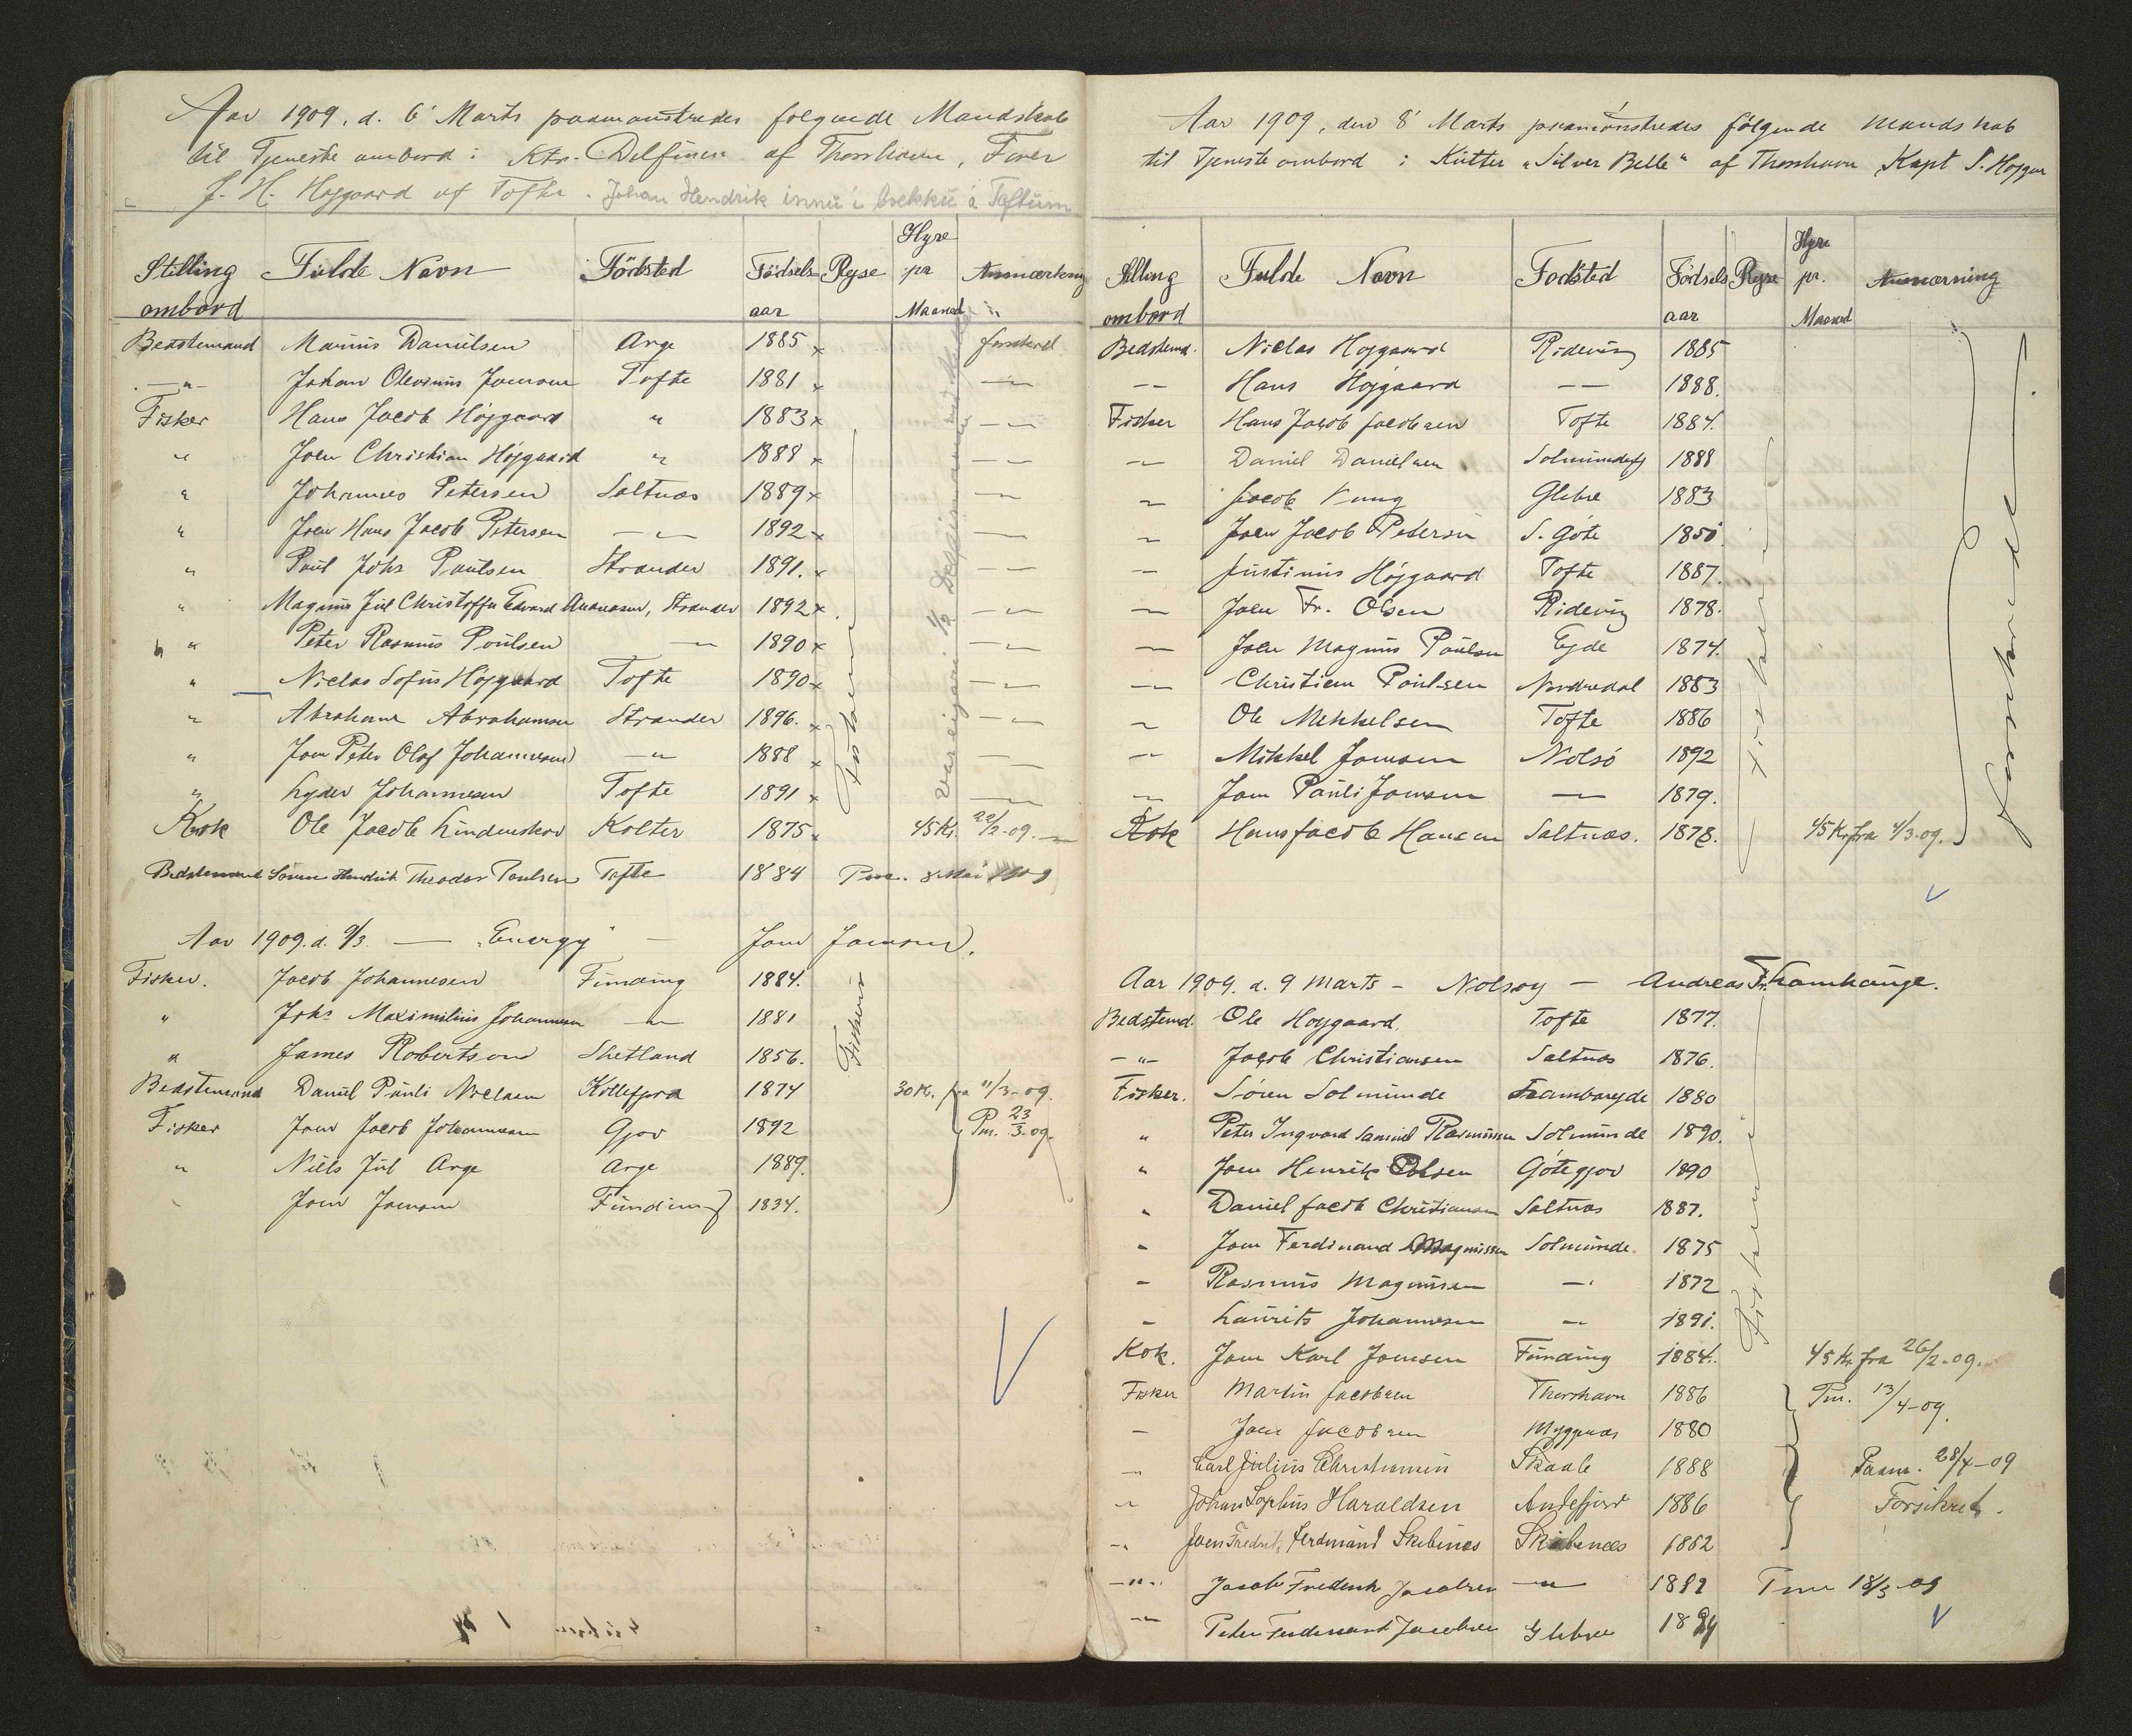 Aar 1909. d. 6' Marts paamønstredes følgende Mandskab
til Tjeneste ombord i Ktr. Delfinen af Thorshavn, Fører
J. H. Højgaard af Tofte. Johan Hendrik innu í brekku á Toftum
Stilling ombord Fulde Navn Födsted Födsels aar Rejse Hyre pr Maaned Anmærkning
Bedstemand Marius Danielsen Arge 1885 x forsikret
-"- Johan Olevinus Joensen Tofte 1881 x -"-
Fisker Hans Jacob Höjgaard " 1883 x -"-
" Joen Christian Höjgaard " 1888 x -"-
" Johannes Petersen Saltnæs 1889 x -"-
" Joen Hans Jacob Petersen -"- 1892 x -"-
" Poul Johs Poulsen Strander 1891. x -"-
" Magnus Jul Christoffer Edvard Ananiasen, Strander 1892 x -"-
" Peter Rasmus Poulsen -"- 1890 x -"-
" Niclas Sofus Höjgaard Tofte 1890 x -"-
" Abraham Abrahamsen Strander 1896. x -"-
" Joen Peter Olaf Johannesen -"- 1888 x -"-
" Lyder Johannesen Tofte 1891 x -"-
Kok Ole Jacob Lindenskov Kolter 1875 x 45 Kr. 22/2-09. -"-
Bedstemand Sörine Hendrik Theodor Poulsen Tofte 1884 Paa. 8 Mai 1909
Fiskeri
Aar 1909. d. 9/3. — "Energy" — Joen Joensen.
Fisker. Jacob Johannesen Funding 1884.
" Johs Maximilius Johannesen -"- 1881
" James Robertson Shetland 1856.
Bedstemand Daniel Pauli Nielsen Kollefjord 1874 30 Kr. fra 11/3-09.
Fisker Joen Jacob Johannesen Gjov 1892 Pm. 23/3-09.
" Niels Jul Arge Arge 1889.
" Joen Joensen Funding 1834.
Fiskeri
Aar 1909, den 8' Marts paamönstredes fölgende Mandskab
til Tjeneste ombord i Kutter "Silver Belle" af Thorshavn Kapt S. Højgaa
Stilling ombord Fulde Navn Fodsted Födsels aar Rejse Hyre pr. Maaned Anmærning
Bedstemd. Niclas Hojgaard Ridevig 1885
-"- Hans Höjgaard -"- 1888.
Fisker Hans Jacob Jacobsen Tofte 1884.
-"- Daniel Danielsen 1888
-"- Jacob Kung Glibre 1883
-"- Joen Jacob Petersen S. Göte 1850
-"- Justinus Höjgaard Tofte 1887.
-"- Joen Fr. Olsen Ridevig 1878.
-"- Joen Magnus Poulsen Ejde 1874.
-"- Christian Poulsen Nordredal 1883
-"- Ole Mikkelsen Tofte 1886
-"- Mikkel Joensen Nolsö 1892
-"- Joen Pauli Joensen -"- 1879.
Kok Hans Jacob Hansen Saltnæs. 1878. 45 Kr fra 4/3-09.
Fiskeri
Forsikrede.
Aar 1909. d. 9 Marts - Nolsoy — Andreas Fr. Kamhauge.
Bedstemd. Ole Hojgaard. Tofte 1877.
-"- Jacob Christiansen Saltnæs 1876.
Fisker. Sören Solmunde Frambøejde 1880
" Peter Ingvard Samuel Rasmussen Solmunde 1890.
" Joen Henrik Polsen Götegjov 1890
" Daniel Jacob Christiansen Saltnæs 1887.
" Joen Ferdinand Magnussen Solmunde 1875
" Rasmus Magnusen -"- 1872
" Laurits Johannesen -"- 1891.
Kok. Joen Karl Joensen Funding 1884. 45 Kr fra 26/2-09.
Fisker Martin Jacobsen Thorshavn 1886 Pm. 13/4-09.
- Joen Jacobsen Myggenæs 1880
-"- Carl Julius Christiansen Skaale 1888 Paam. 28/4-09
-"- Johan Sophus Haraldsen Andefjord 1886 Forsikret.
-"- Joen Fredrik Ferdinand Skibenes Skibenæs 1862
-"- Jacob Frederik Jacobsen -"- 1882 18/3-09
-"- Peter Ferdinant Jacobsen Glibre 1894
Fiskeri